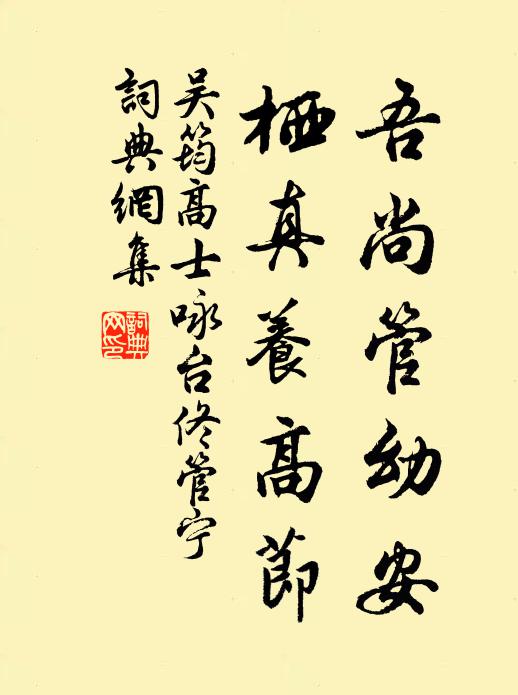 吾尚管幼安
栖真養高節
吴筠高士咏台佟管宁
詞典網集
詞典網印